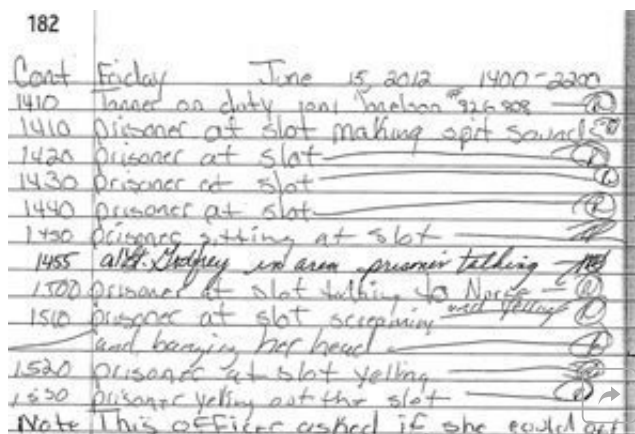 182
Cont Friday June 15, 2012 1400-2200
1410 Tanner on duty
1410 prisoner at slot making spit sounds
1420 prisoner at slot
1430 prisoner at slot
1440 prisoner at slot
1450 prisoner sitting at slot
1455 Godfrey in area prisoner talking
1500 prisoner at slot talking to Nurse
1510 prisoner at slot screaming and yelling
and banging her head
1520 prisoner at slot yelling
1530 prisoner yelling out the slot
Note This officer asked if she could get